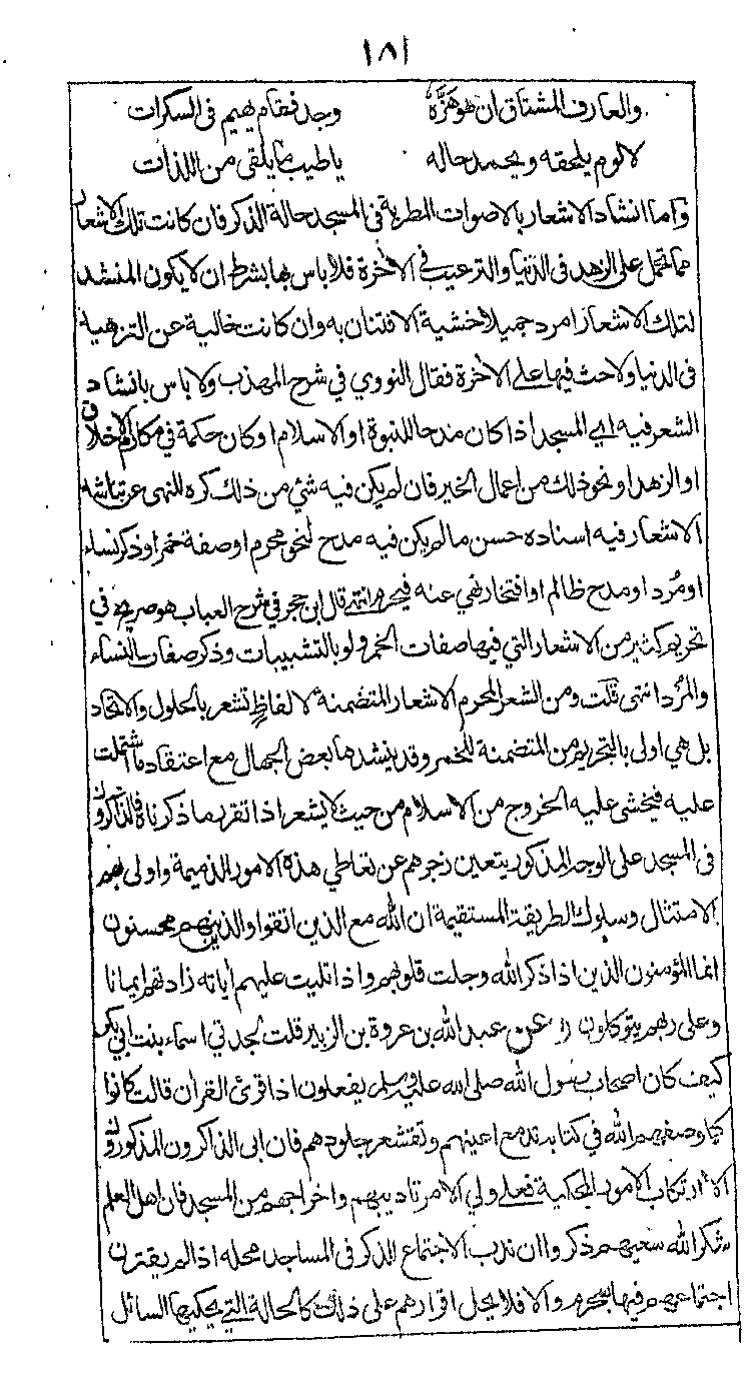 ١٨١
والعارف المشتاق ان هو هزَّه وجد فقام يهيم فى السكرات
لا لوم يلحقه ويحمد حاله ياطيب ما يلقى من اللذات
واما انشاد الاشعار بالاصوات المطربة فى المسجد حالة الذكر فان كانت تلك الاشعار
مما تحمل على الزهد فى الدنيا والترغيب فى الآخرة فلا باس بها بشرط ان لا يكون المنشد
لتلك الاشعار امرد جميلا خشية الافتتان به وان كانت خالية عن التزهيد
فى الدنيا ولاحث فيها على الآخرة فقال النووي في شرح المهذب ولا باس بانشاد
الشعر فيه اي المسجد اذا كان مدحا للنبوة او الاسلام او كان حكمة في مكارم الاخلاق
او الزهد او نحو ذلك من اعمال الخير فان لم يكن فيه شئ من ذلك كره للنهى عن تناشد
الاشعار فيه اسناده حسن ما لم يكن فيه مدح لنحو محرم او صفة خمر او ذكر نساء
او مُرد او مدح ظالم او افتخار نهي عنه فيحرم انتهى قال ابن حجر في شرح العباب هو صريح في
تحريم كثير من الاشعار التي فيها صفات الخمر ولو بالتشبيبات وذكر صفات النساء
والمُرد انتهى قلت ومن الشعر المحرم الاشعار المتضمنة لالفاظٍ تشعر بالحلول والاتحاد
بل هي اولى بالتحريم من المتضمنة للخمر وقد ينشدها بعض الجهال مع اعتقاد ما اشتملت
عليه فيخشى عليه الخروج من الاسلام من حيث لا يشعر اذا تقرر ما ذكرناه فالذاكرون
فى المسجد على الوجه المذكور يتعين زجرهم عن تعاطي هذه الامور الذميمة واولى بهم
الامتثال وسلوك الطريقة المستقيمة ان الله مع الذين اتقوا والذين هم محسنون
انما المؤمنون الذين اذا ذكر الله وجلت قلوبهم واذا تليت عليهم اياته زادتهم ايمانا
وعلى ربهم يتوكلون عن عبد الله بن عروة بن الزبير قلت لجدتي اسماء بنت ابي بكر
كيف كان اصحاب رسول الله صلى الله عليه وسلم يفعلون اذا قرئ القران قالت كانوا
كما وصفهم الله في كتابه تدمع اعينهم وتقشعر جلودهم فان ابى الذاكرون المذكورون
الا ارتكاب الامور المحكية فعلى ولي الامر تاديبهم واخراجهم من المسجد فان اهل العلم
شكر الله سعيهم ذكروا ان ندب الاجتماع للذكر فى المساجد محله اذا لم يقترن
اجتماعهم فيها بمحرم والا فلا يحل اقرارهم على ذلك كالحالة التي يحكيها السائل